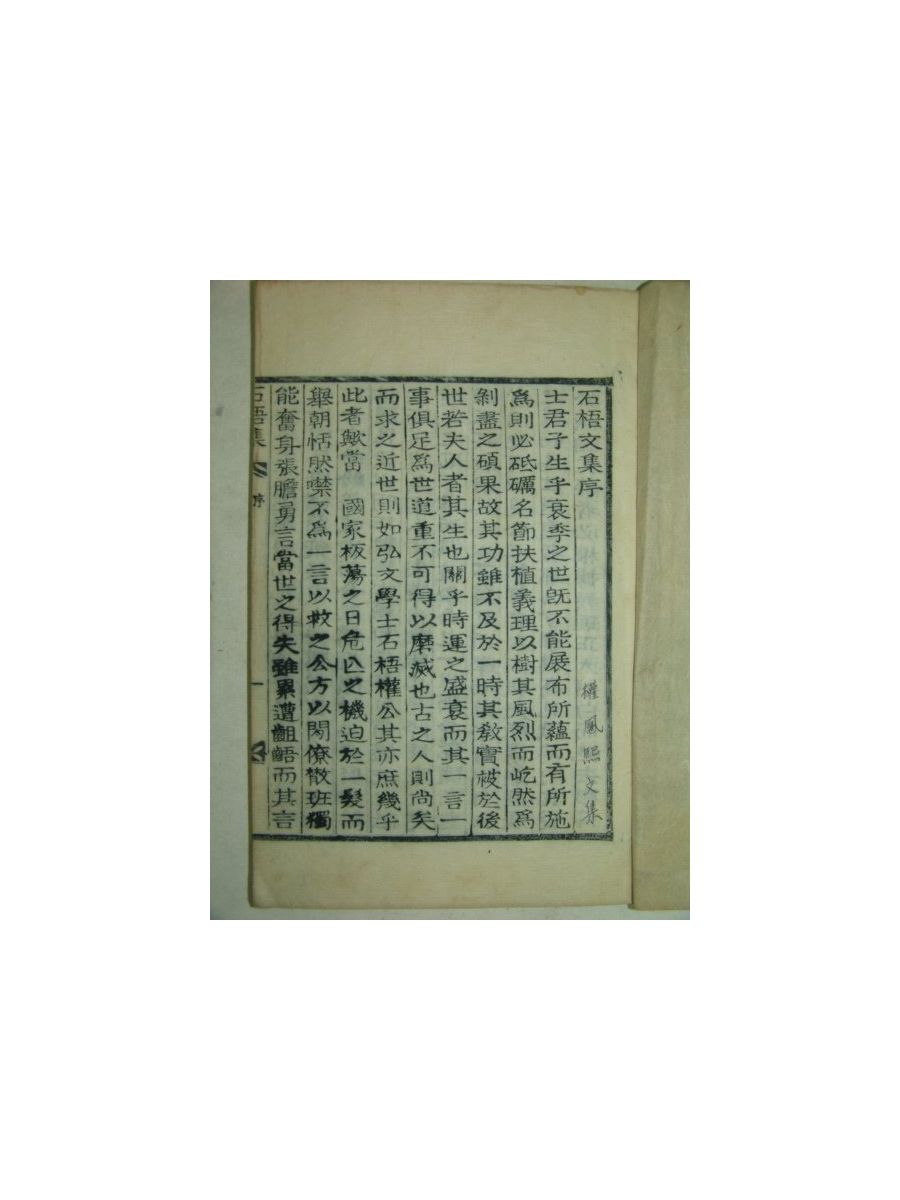 石梧文集序
權鳳熙文集
士君子生乎衰季之世旣不能展布所蘊而有所施
爲則必砥礪名節扶植義理以樹其風烈而屹然爲
剝盡之碩果故其功雖不及於一時其敎實被於後
世若夫人者其生也關乎時運之盛衰而其一言一
事俱足爲世道重不可得以磨滅也古之人則尚矣
而求之近世則如弘文學士石梧權公其亦庶幾乎
此者歟當 國家板蕩之日危亾之機迫於一髮而
擧朝恬然噤不爲一言以救之公方以閑僚散班獨
能奮身張膽勇言當世之得失雖累遭齟齬而其言
石梧集 序 一